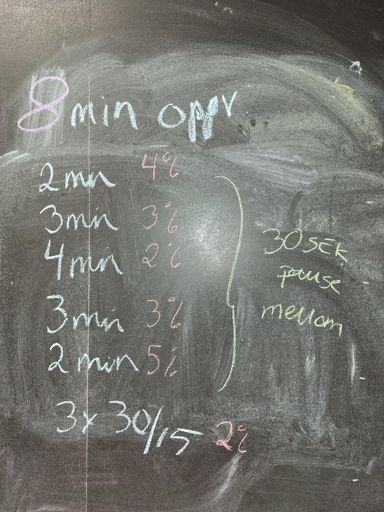 8 min oppv
2 min 4%
3 min 3%
4 min 2%
3 min 3%
2 min 5%
30 SEK
pause
mellom
3x 30/15 2%